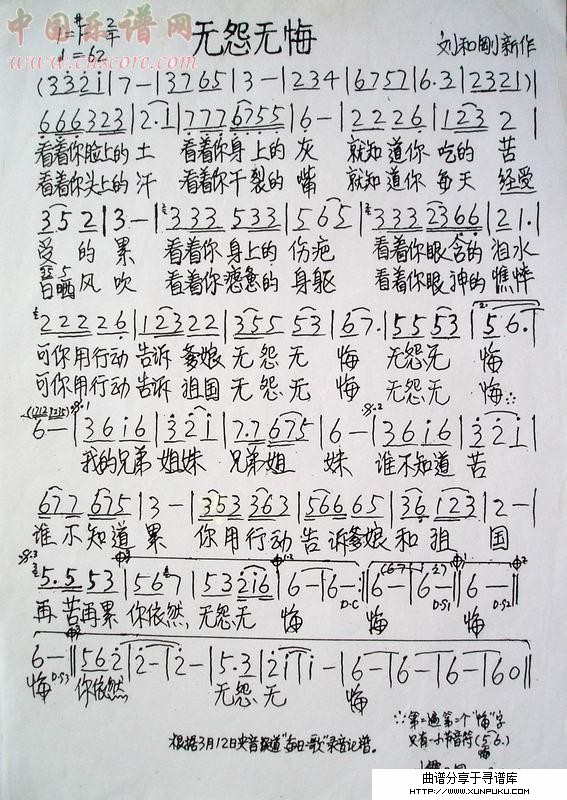 中国乐谱网
www.cnscore.com
1=#F 2/4
♩=62
无怨无悔
刘和刚新作
(3 3 2 1 | 7 - | 3 7 6 5 | 3 - | 2 3 4 | 6 7 5 7 | 6· 3 | 2 3 2 1)
6 6 6 3 2 3 | 2· 1 | 7 7 7 6 7 5 5 | 6 - | 2 2 2 6 | 1 2 3 2 |
看着你脸上的土 看着你身上的灰 就知道你吃的苦
看着你头上的汗 看着你干裂的嘴 就知道你每天经受
3 5 2 | 3 - | 3 3 3 5 3 3 | 5 6 5 | 3 3 3 2 3 6 6 | 2 1· |
受的累 看着你身上的伤疤 看着你眼含的泪水
日晒风吹 看着你疲惫的身躯 看着你眼神的憔悴
2 2 2 2 6 | 1 2 3 2 2 | 3 5 5 5 3 | 6 7· | 5 5 5 3 | 5 6· |
可你用行动告诉爹娘无怨无悔 无怨无悔
可你用行动告诉祖国无怨无悔 无怨无悔
6 - | 3 6 1 6 | 3 2 1 | 7· 7 6 7 5 | 6 - | 3 6 1 6 | 3 2 1 |
我的兄弟姐妹 兄弟姐妹 谁不知道苦
6 7 7 6 7 5 | 3 - | 3 5 3 3 6 3 | 5 6 6 6 5 | 3 6 1 2 3 | 2 - |
谁不知道累 你用行动告诉爹娘和祖国
5· 5 5 3 | 5 6 7 | 5 3 2 1 6 | 6 - | 6 - | 6 - | 6 - | 6 - ||
再苦再累你依然无怨无悔 悔 悔
D·C D·S1 D·S2
6 - || 5 6 2 | 2 - | 2 - | 5· 3 | 2 1 | 1 - | 6 - | 6 - | 6 - | 6 0 ||
悔 D·S3 你依然 无怨无悔
∵第二遍第二个"悔"字
根据3月12日央音报道"每日一歌"录音记谱。
只有一小节音符(5 6·)
悔
曲谱分享于寻谱库
WWW.XUNPUKU.COM